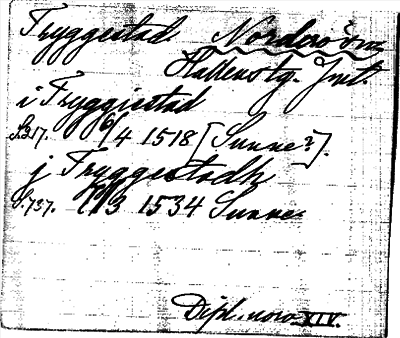 Tryggestad Norderöm
Hallens tg. Jmtl.
i Tryggiestad
S. 317. 6/4 1518 [Sunne?].
j Tryggestadh
S. 737. 1/3 1534 Sunne
Dipl. norv. XIV.